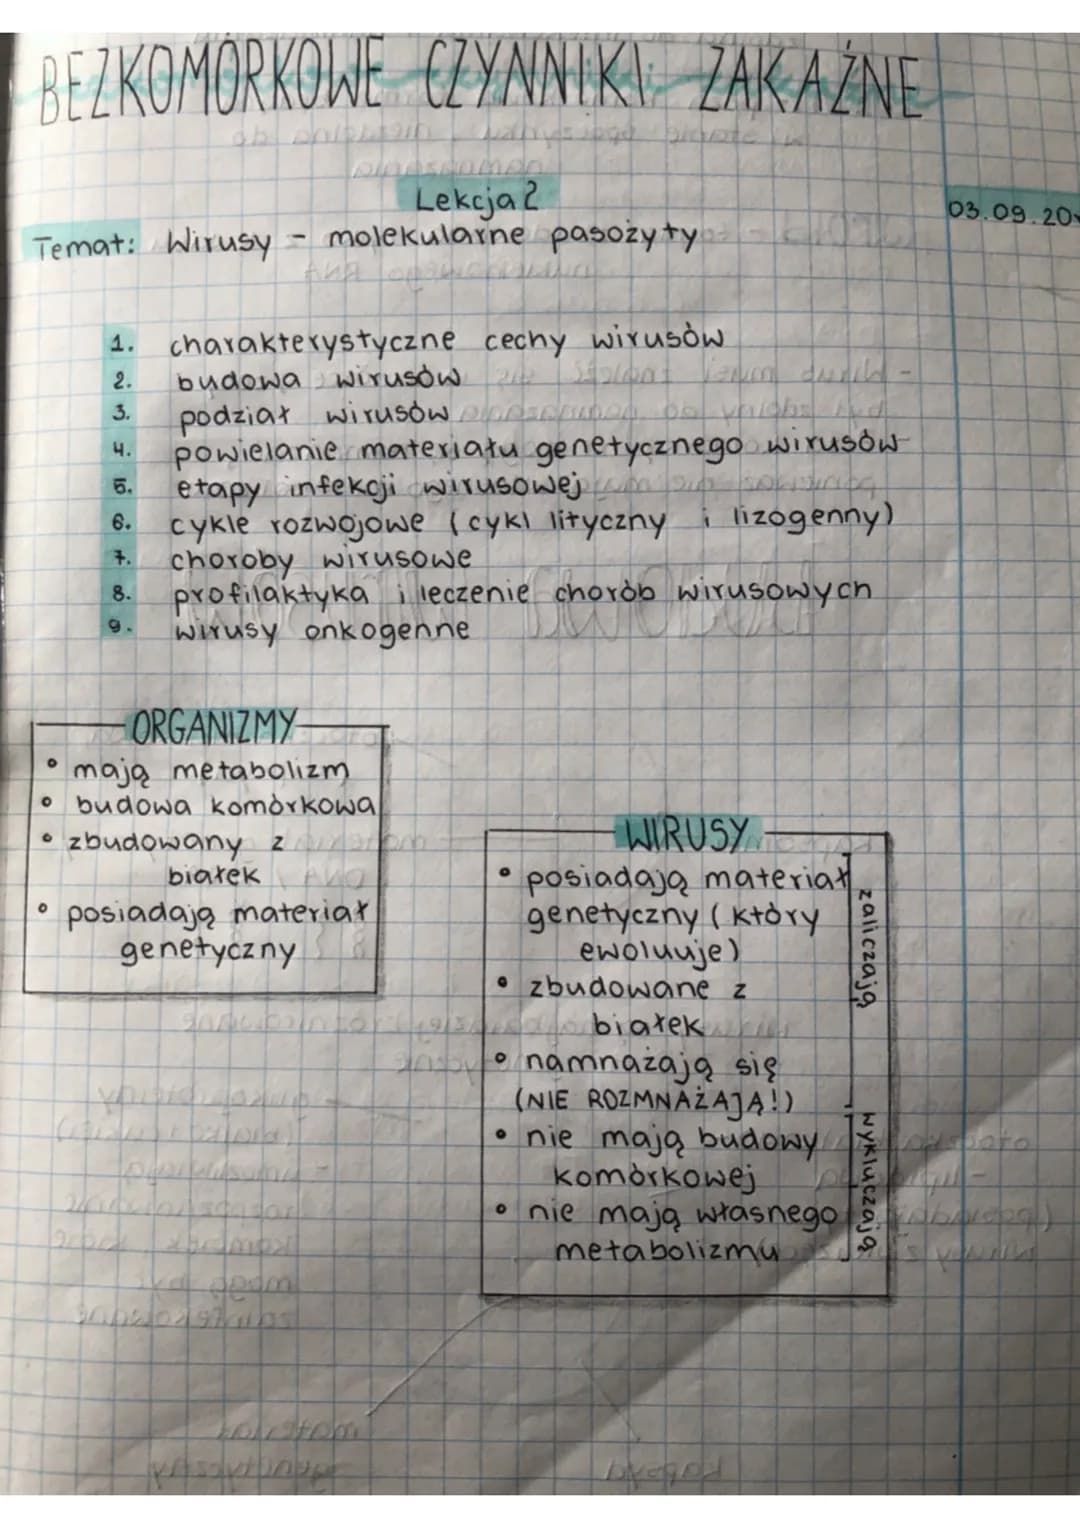 BEZKOMÓRKOWE CZYNNIKI ZAKAŹNE
Lekcja 2
03.09.20
Temat: Wirusy - molekularne pasożyty
1. charakterystyczne cechy wirusów
2. budowa wirusów
3. podział wirusów
4. powielanie materiału genetycznego wirusów
5. etapy infekcji wirusowej
6. cykle rozwojowe (cykl lityczny i lizogenny)
7. choroby wirusowe
8. profilaktyka i leczenie chorób wirusowych
9. wirusy onkogenne
ORGANIZMY
• mają metabolizm
• budowa komórkowa
• zbudowany z
białek
• posiadają materiał
genetyczny
WIRUSY
• posiadają materiał
genetyczny (który
ewoluuje)
• zbudowane z
białek
• namnażają się
(NIE ROZMNAŻAJĄ!)
• nie mają budowy
komórkowej
• nie mają własnego
metabolizmu
zaliczają
wykluczają